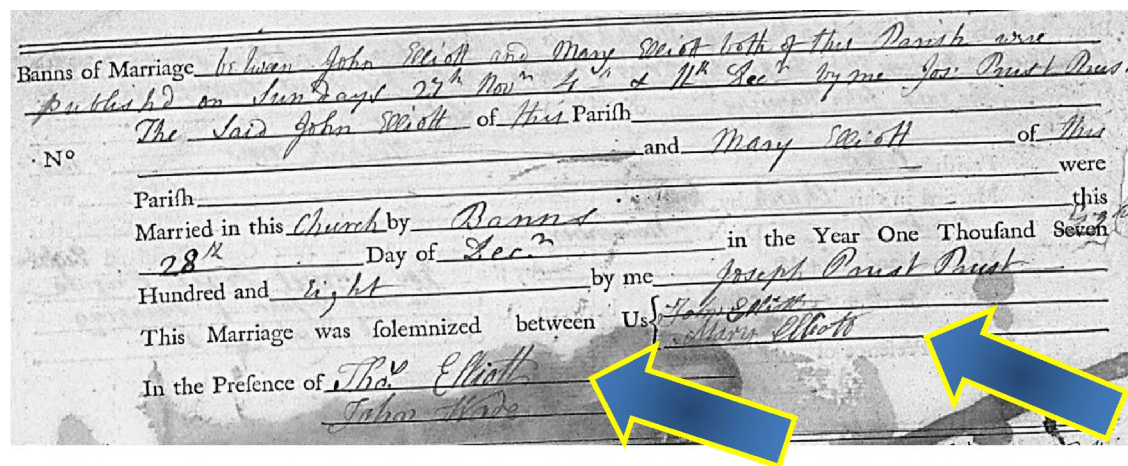 Banns of Marriage between John Elliott and Mary Elliott both of this Parish were
publish'd on Sundays 27th Novr 4th & 11th Decr by me Jos: Prust
The Said John Elliott of this Pariſh
No and Mary Elliott of this
Pariſh were
Married in this Church by Banns this
28th Day of Decr in the Year One Thouſand Seven
Hundred and Eight by me Joseph Prust
This Marriage was ſolemnized between Us John Elliott
Mary Elliott
In the Preſence of Thos Elliott
John Wade